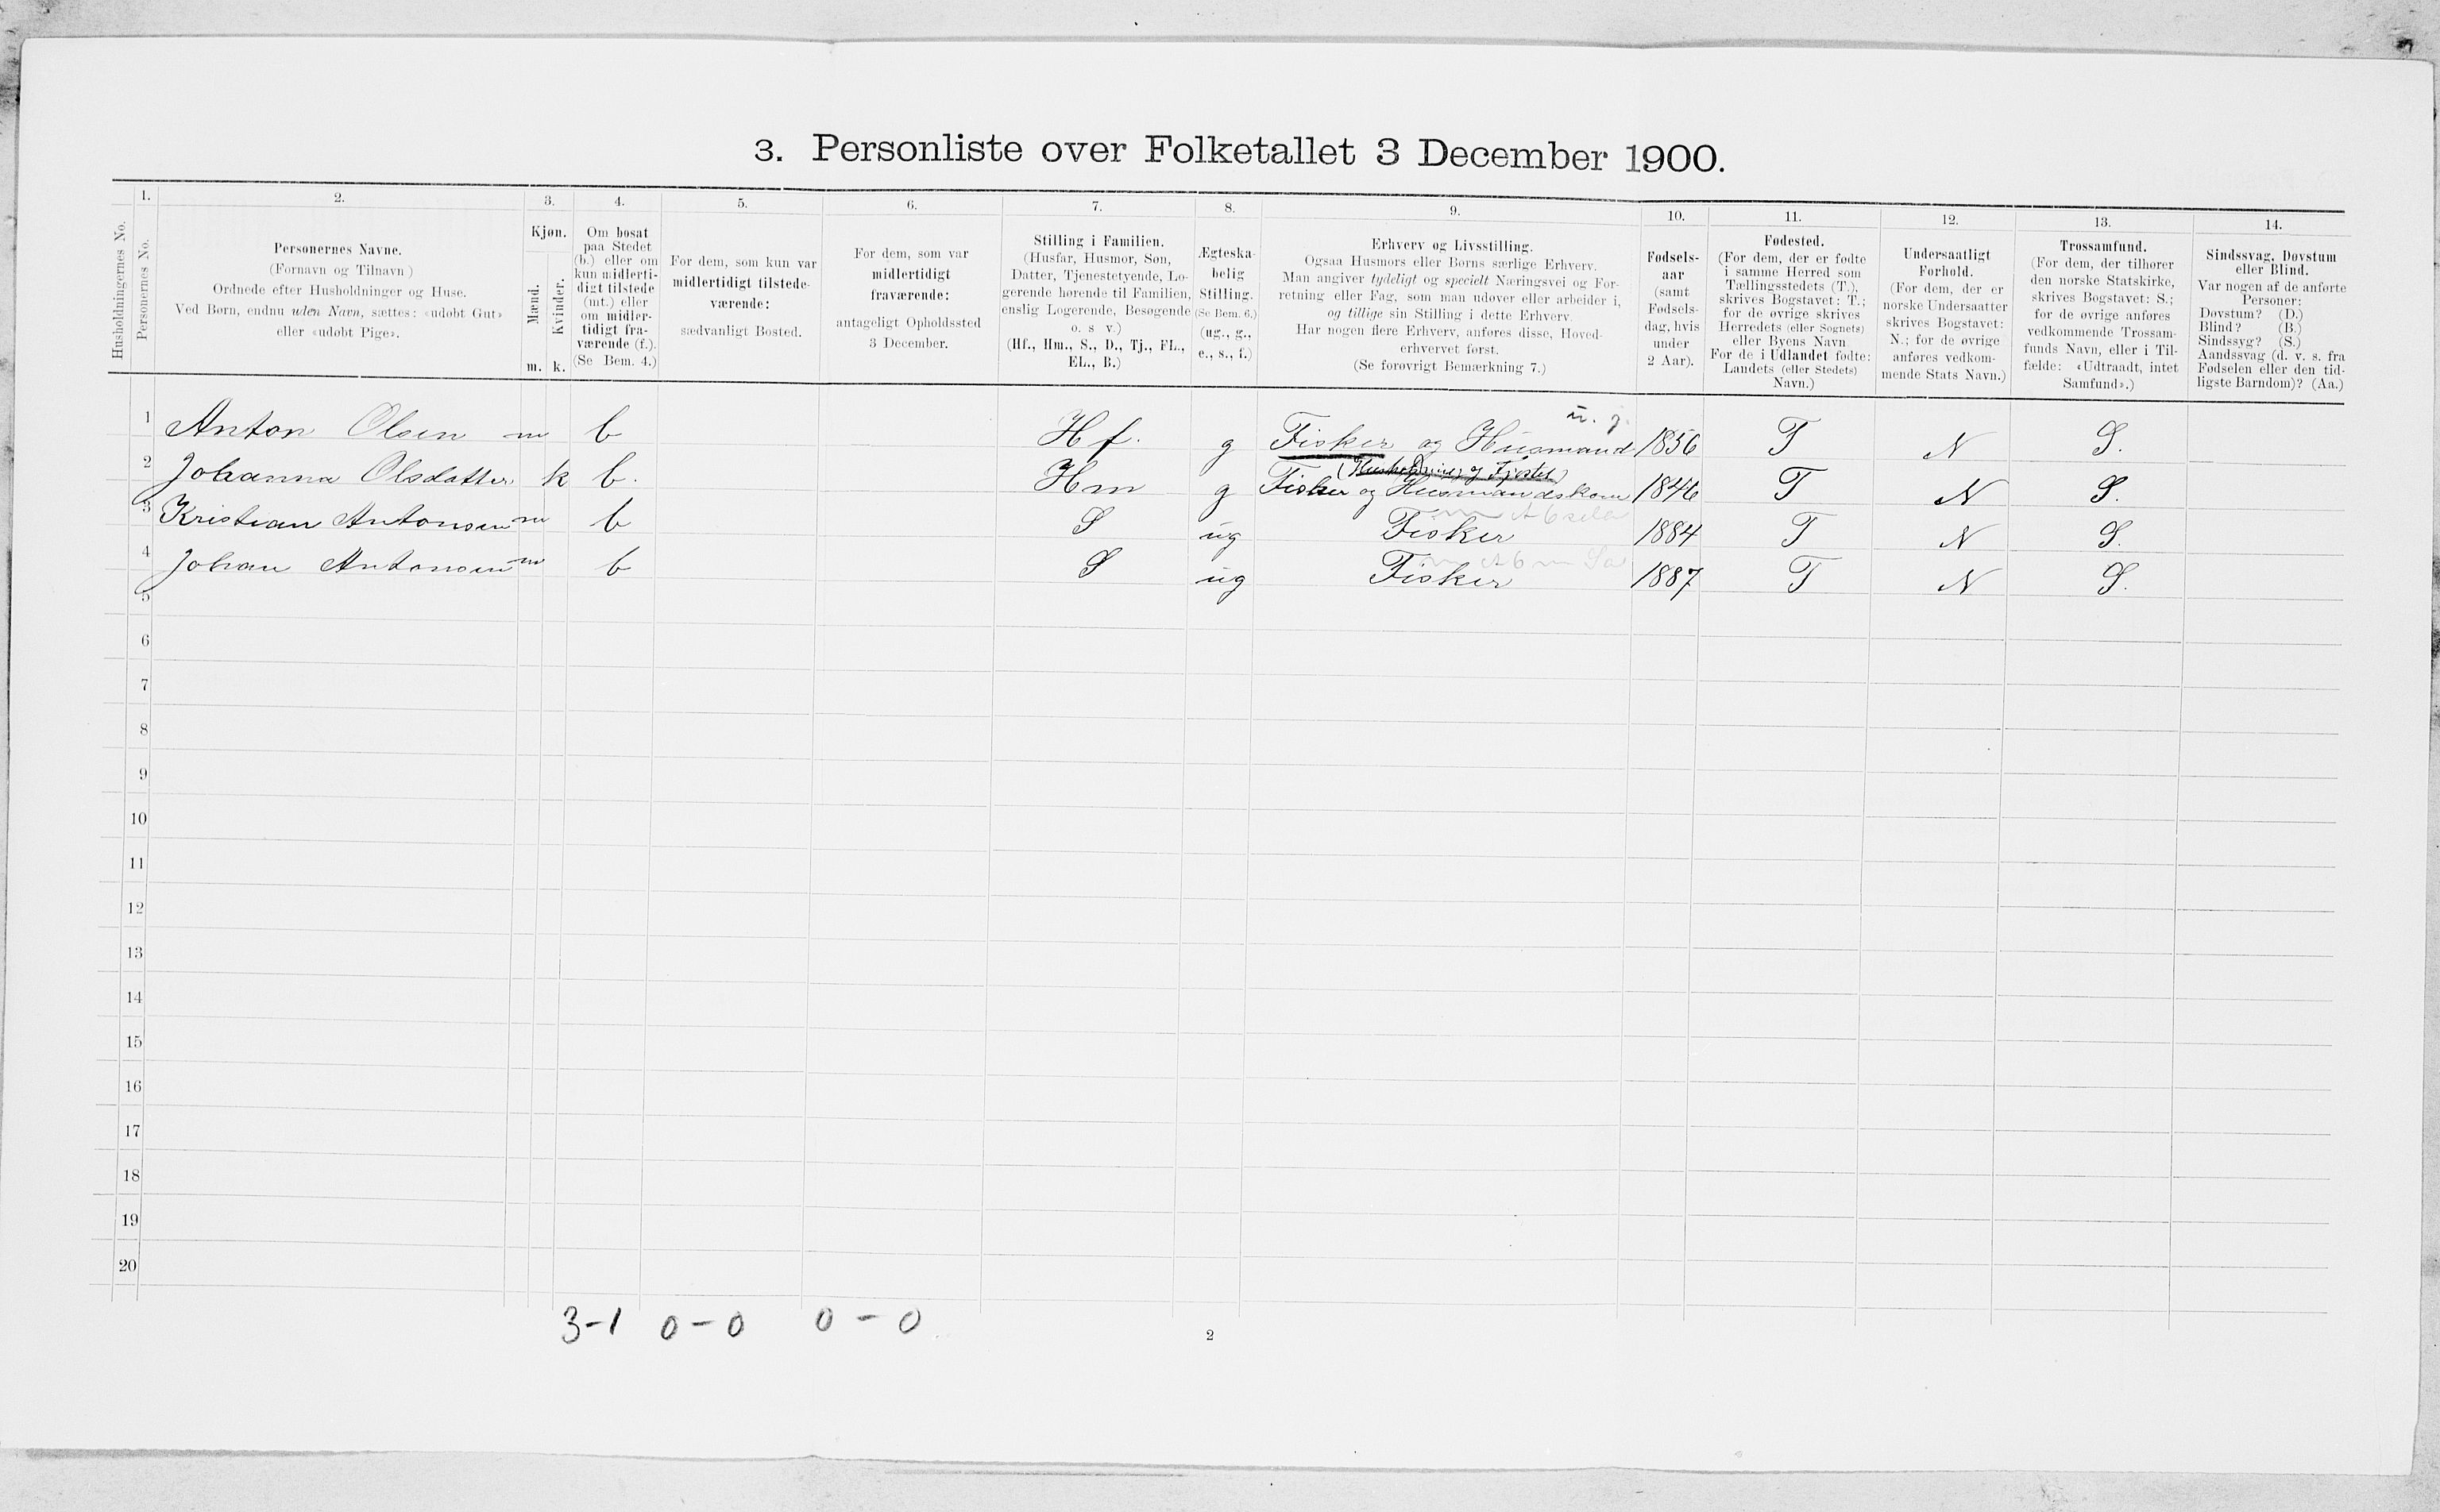 3. Personliste over Folketallet 3 December 1900.
1. 2. 3. 4. 5. 6. 7. 8. 9. 10. 11. 12. 13. 14.
Husholdningernes No.
Personernes No.
Personernes Navne.
(Fornavn og Tilnavn)
Ordnede efter Husholdninger og Huse.
Ved Børn, endnu uden Navn, sættes: «udøbt Gut»
eller «udøbt Pige».
Kjøn.
Mænd.
Kvinder.
m. k.
Om bosat
paa Stedet
(b.) eller om
kun midlerti-
digt tilstede
(mt.) eller
om midler-
tidigt fra-
værende (f.).
(Se Bem. 4.)
For dem, som kun var
midlertidigt tilstede-
værende:
sædvanligt Bosted.
For dem, som var
midlertidigt
fraværende:
antageligt Opholdssted
3 December.
Stilling i Familien.
(Husfar, Husmor, Søn,
Datter, Tjenestetyende, Lo-
gerende hørende til Familien,
enslig Logerende, Besøgende
o. s v.)
(Hf., Hm., S., D., Tj., FL.,
EL., B.)
Ægteska-
belig
Stilling.
(Se Bem. 6.)
(ug., g.,
e., s., f.)
Erhverv og Livsstilling.
Ogsaa Husmors eller Børns særlige Erhverv.
Man angiver tydeligt og specielt Næringsvei og For-
retning eller Fag, som man udøver eller arbeider i,
og tillige sin Stilling i dette Erhverv.
Har nogen flere Erhverv, anføres disse, Hoved-
erhvervet først.
(Se forøvrigt Bemærkning 7.)
Fødsels-
aar
(samt
Fødsels-
dag, hvis
under
2 Aar).
Fødested.
(For dem, der er fødte
i samme Herred som
Tællingsstedets (T.),
skrives Bogstavet: T.;
for de øvrige skrives
Herredets (eller Sognets)
eller Byens Navn
For de i Udlandet fødte:
Landets (eller Stedets)
Navn.)
Undersaatligt
Forhold.
(For dem, der er
norske Undersaatter
skrives Bogstavet:
N.; for de øvrige
anføres vedkom-
mende Stats Navn.)
Trossamfund.
(For dem, der tilhører
den norske Statskirke,
skrives Bogstavet: S.;
for de øvrige anføres
vedkommende Trossam-
funds Navn, eller i Til-
fælde: «Udtraadt, intet
Samfund».)
Sindssvag, Døvstum
eller Blind.
Var nogen af de anførte
Personer:
Døvstum? (D.)
Blind? (B.)
Sindssyg? (S.)
Aandssvag (d. v. s. fra
Fødselen eller den tid-
ligste Barndom)? (Aa.)
1 Anton Olsen m b Hf. g Fisker og Husmand 1856 T N S.
2 Johanna Olsdatter k b. Hm g Fisker og Husmandskone 1846 T N S.
3 Kristian Antonsen m b S ug Fisker 1884 T N S.
4 Johan Antonsen m b S ug Fisker 1887 T N S.
5
6
7
8
9
10
11
12
13
14
15
16
17
18
19
20
3-1 0-0 0-0
2